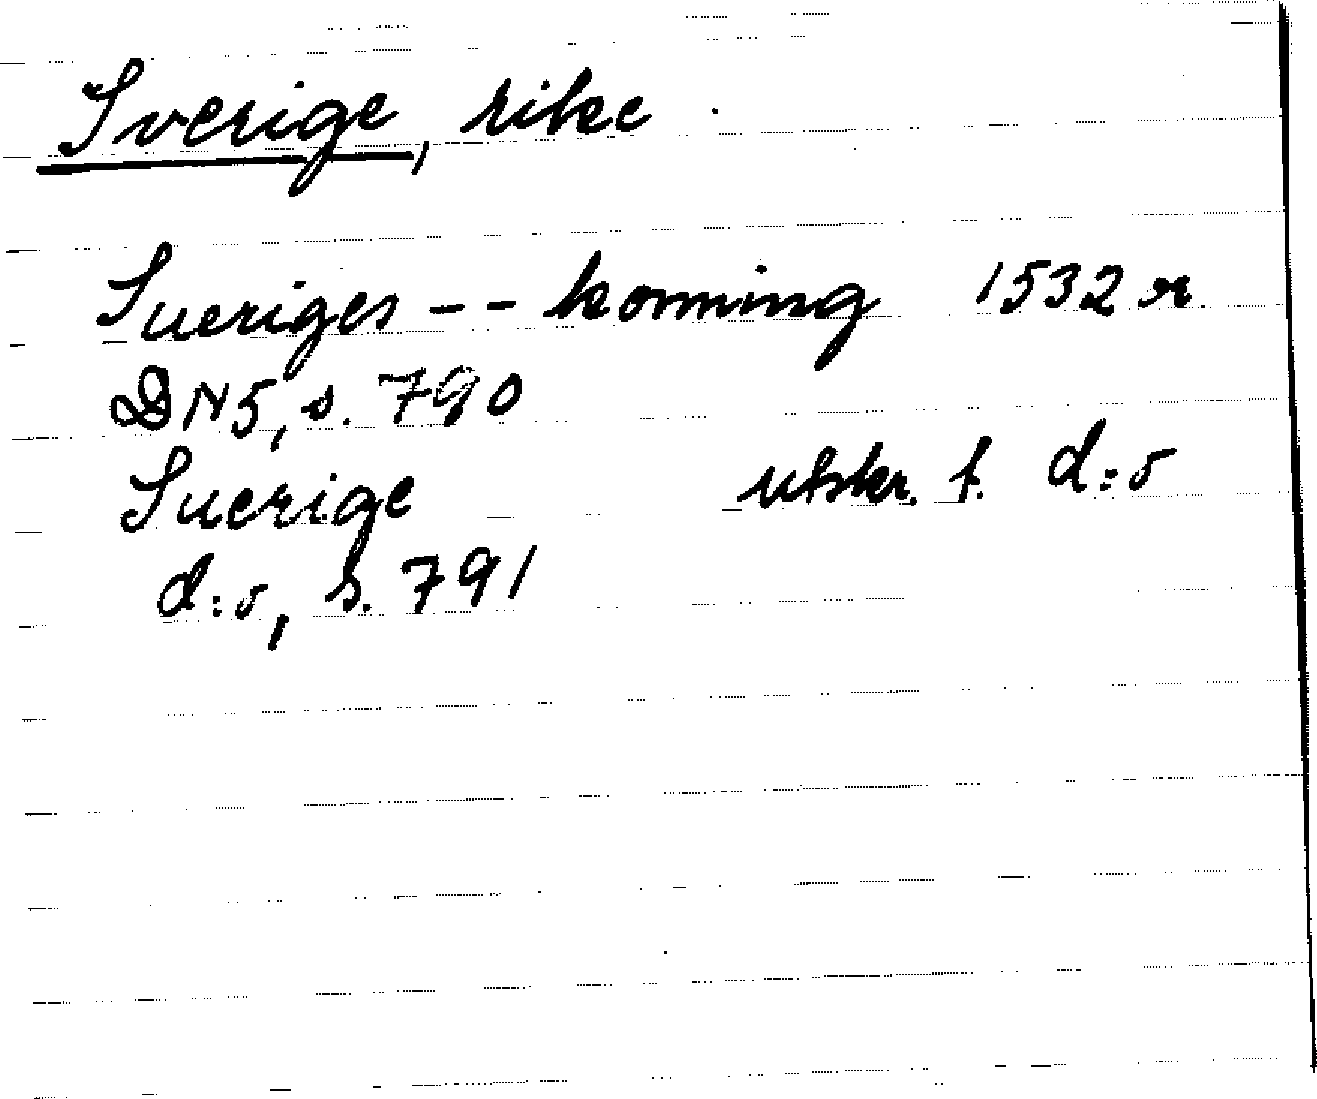 Sverige, rike
Sueriges -- konning 1532 or.
DN 5, s. 790
Suerige utskr. f. d:o
d:o, s. 791